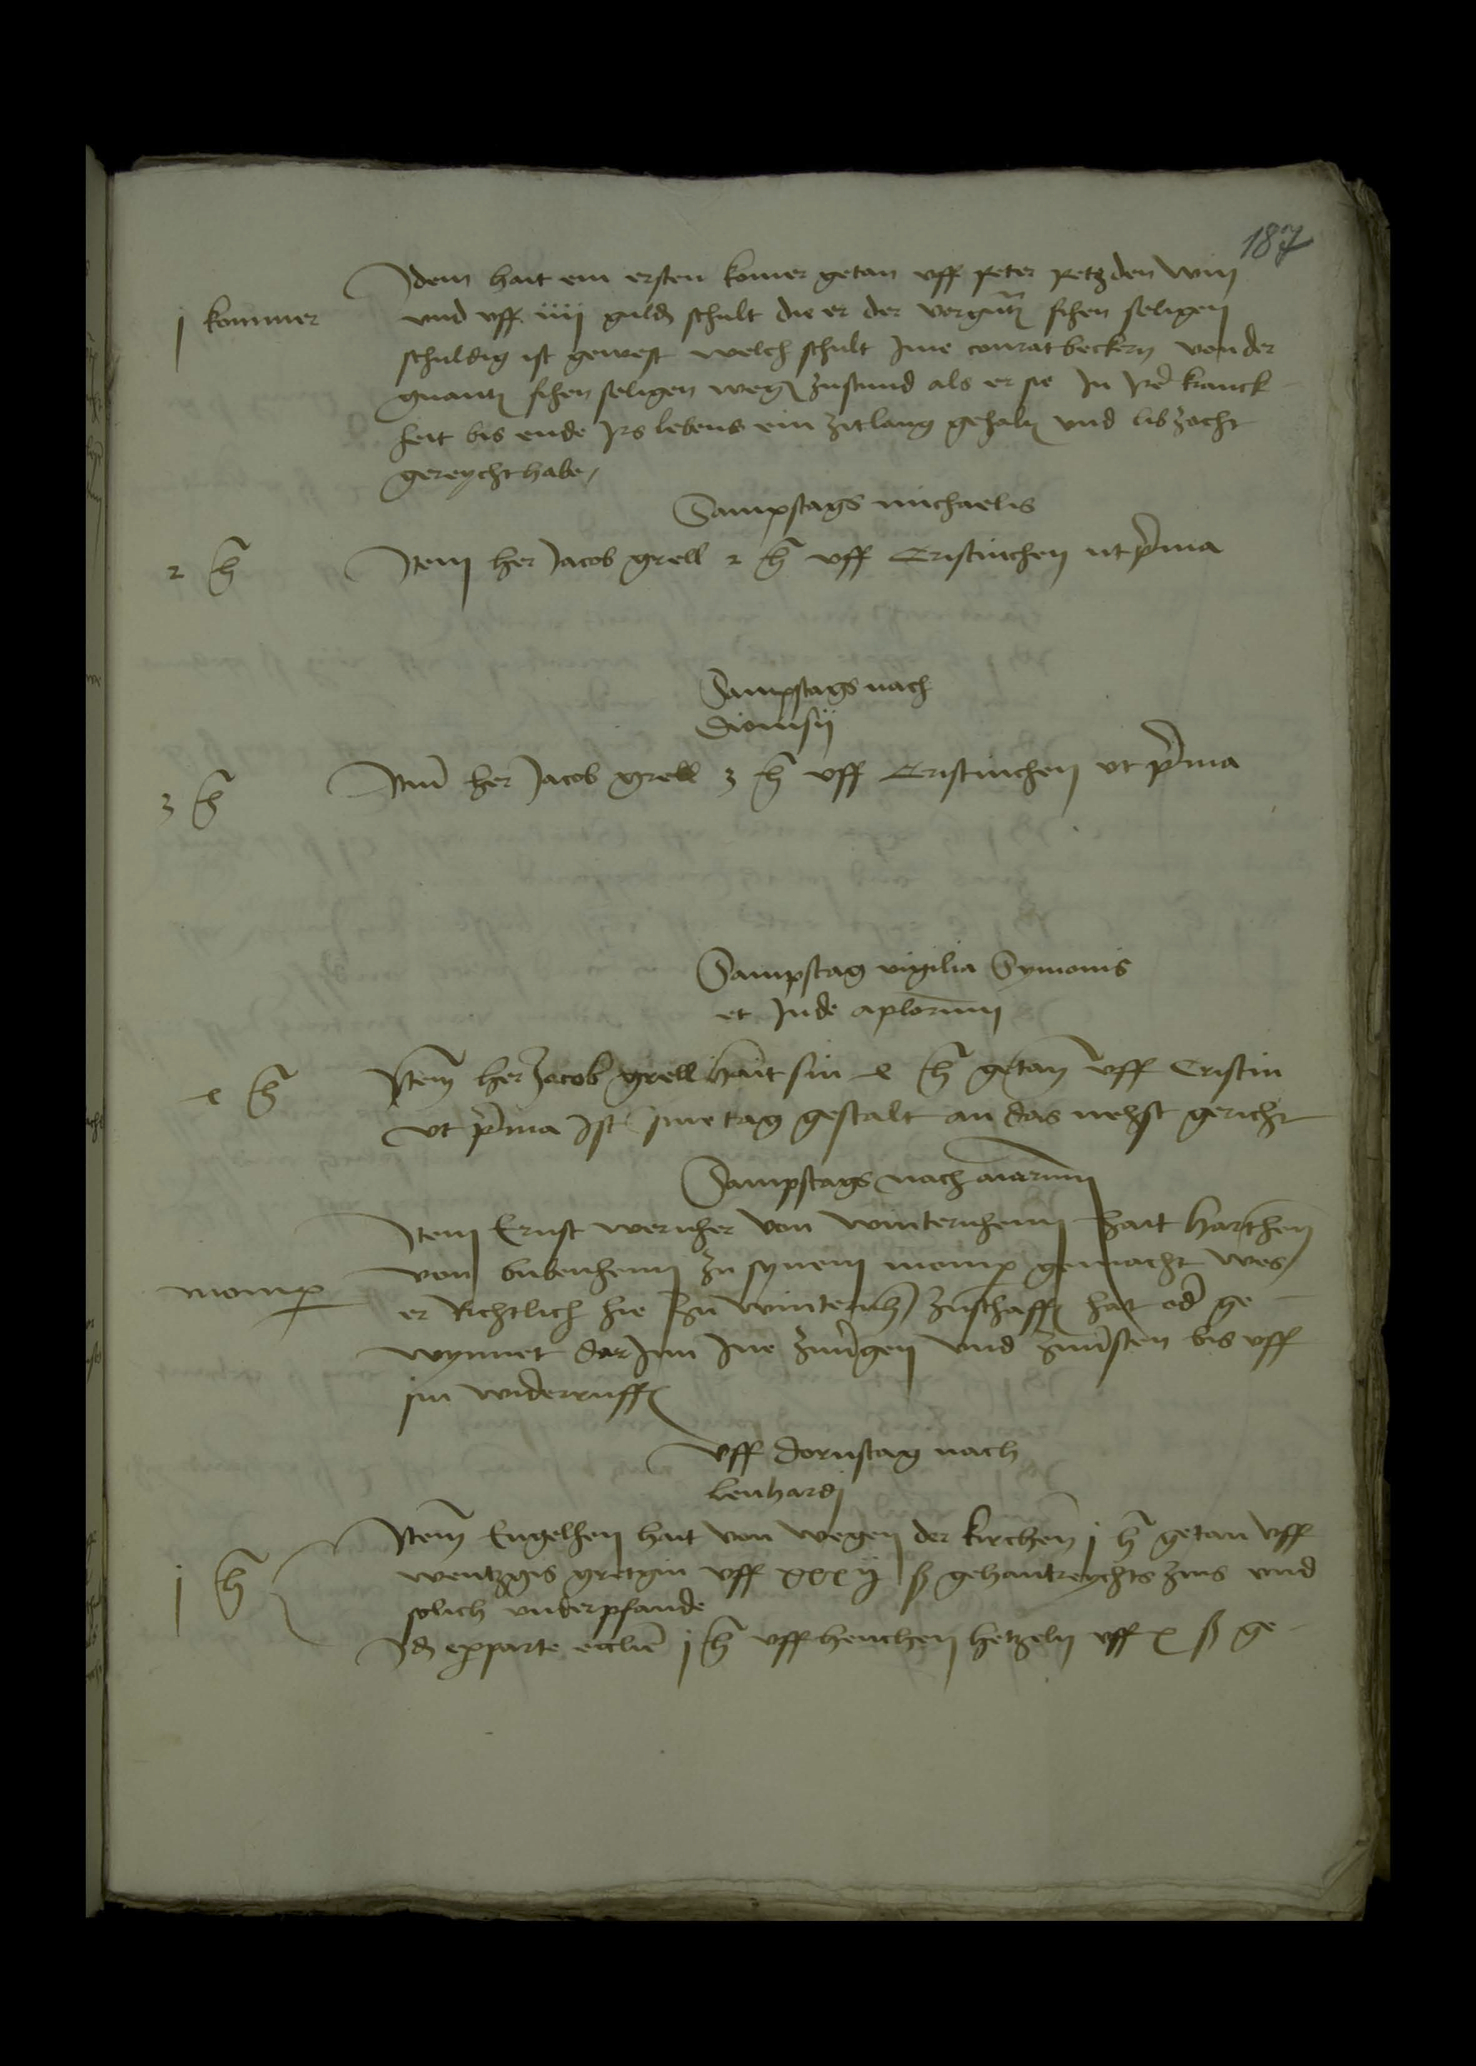 187
Idem hait ein ersten komer getan uff peter petz den win
j kommer
und uff iiij guld schult die er der
schuldig ist gewest welch schult Ime conrat beckern von der
wegen zustund als er sie In Ire kranck
heit bis ende Irs lebens ein zitlang gehaln und libzocht
gereycht habe
Sampstags michaelis
2 h
Item her Jacob grell 2 h uff Cristinchen ut prima
Sampstags nach
Dionisij
3 h
Item her Jacob grell 3 h uff Cristinchen ut prima
Sampstag vigilia Symonis
et Jude aplorum
4 h
Item her Jacob grell hait sin 4 h getan uff Cristin
ut prima Ist sine tag gestalt an das nehst gericht
Sampstags nach aiarum
Item Ernst wericher von winternheim hait Harthen
von bubenheim zu synem momp gemacht wes
momp
er Richtlich hie zu winternh zuschaffen hat oder ge
wynnet dar Inn Ine zuvergen und zuversten bis uff
sin widerruff
uff dornstag nach
lenhardi
Item Engelhen hait von wegen der kirchen j h getan uff
j h
wentzgis gretgin uff xxxij ß gehantreychts zins und
solich unterpfande
Id ex parte ecclie j h uff henchen hetzeln uff x ß ge